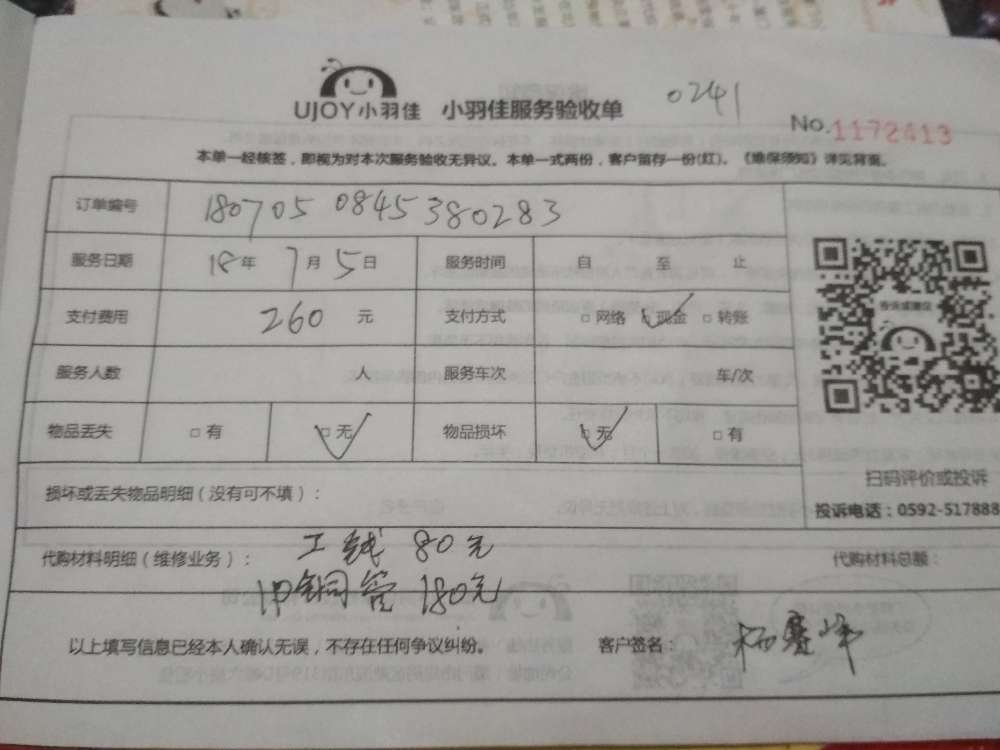 UJOY小羽佳 小羽佳服务验收单 0241
No.1172413
本单一经核签，即视为对本次服务验收无异议。本单一式两份，客户留存一份(红)。《维保须知》详见背面。
订单编号 180705 0845 380283
服务日期 18年 7月5日 服务时间 自 至 止
支付费用 260 元 支付方式 □网络 □现金 □转账
服务人数 人 服务车次 车/次
物品丢失 □有 □无 物品损坏 □无 □有
扫码评价或投诉
损坏或丢失物品明细（没有可不填）：
投诉电话：0592-517888
代购材料明细（维修业务）： 工钱 80元 代购材料总额：
1P铜管 180元
以上填写信息已经本人确认无误，不存在任何争议纠纷。 客户签名：